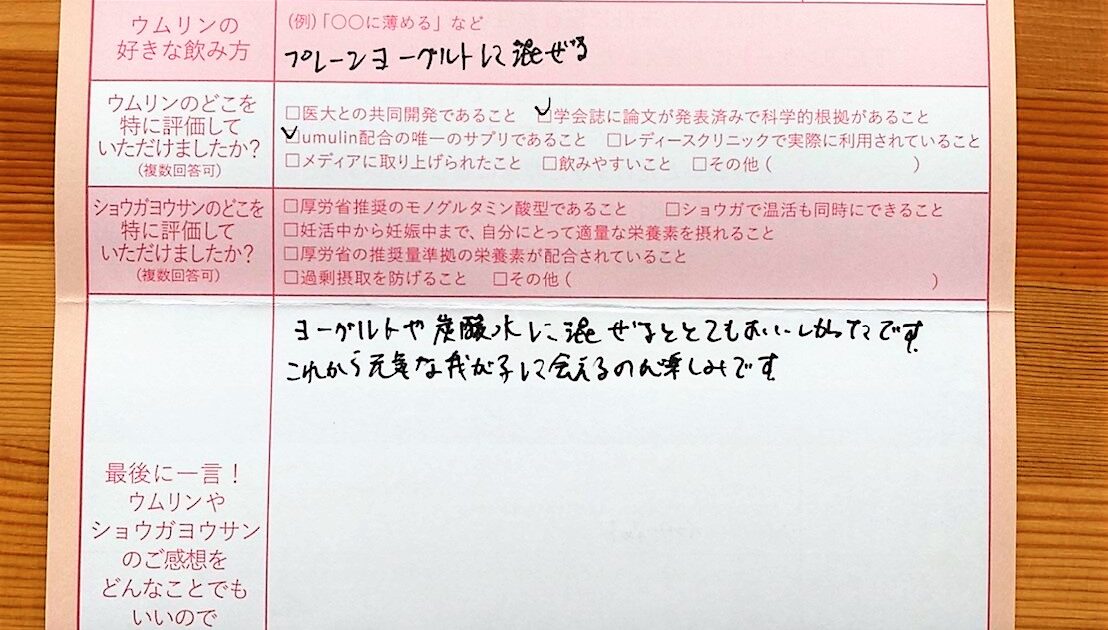 ウムリンの
好きな飲み方
（例）「〇〇に薄める」など
プレーンヨーグルトに混ぜる
ウムリンのどこを
特に評価して
いただけましたか?
（複数回答可）
□医大との共同開発であること □学会誌に論文が発表済みで科学的根拠があること
□umulin配合の唯一のサプリであること □レディースクリニックで実際に利用されていること
□メディアに取り上げられたこと □飲みやすいこと □その他（ ）
ショウガヨウサンのどこを
特に評価して
いただけましたか?
（複数回答可）
□厚労省推奨のモノグルタミン酸型であること □ショウガで温活も同時にできること
□妊活中から妊娠中まで、自分にとって適量な栄養素を摂れること
□厚労省の推奨量準拠の栄養素が配合されていること
□過剰摂取を防げること □その他（ ）
ヨーグルトや炭酸水に混ぜるととてもおいしかったです。
これから元気な我が子に会えるのが楽しみです。
最後に一言！
ウムリンや
ショウガヨウサン
のご感想を
どんなことでも
いいので